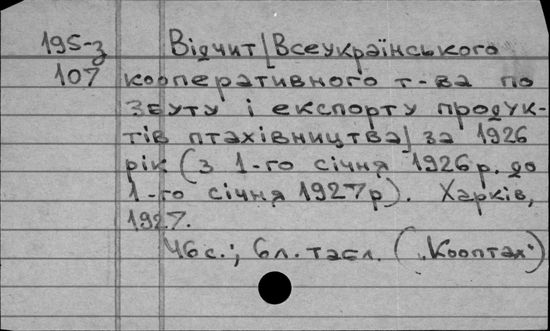 195-з Відчит [Всеукраїнського
107 кооперативного т-ва по
збуту і експорту продук-
тів птахівництва] за 1926
рік (з 1-го січня 1926 р. до
1-го січня 1927 р). Харків,
1927.
46 с.; 6 л. табл. („Кооптах")